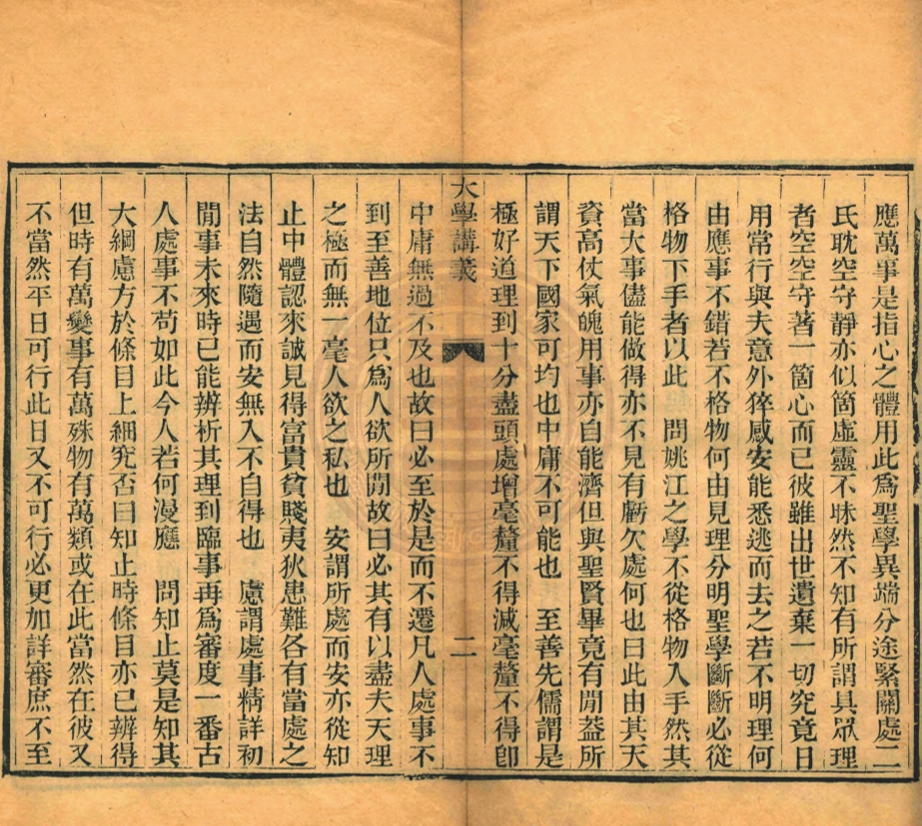 應萬事是指心之體用此爲聖學異端分途緊關處二
氏耽空守靜亦似箇虛靈不昧然不知有所謂具眾理
者空空守著一箇心而已彼雖出世遺棄一切究竟日
用常行與夫意外猝感安能悉逃而去之若不明理何
由應事不錯若不格物何由見理分明聖學斷斷必從
格物下手者以此　問姚江之學不從格物入手然其
當大事儘能做得亦不見有虧欠處何也曰此由其天
資高仗氣魄用事亦自能濟但與聖賢畢竟有閒葢所
謂天下國家可均也中庸不可能也　至善先儒謂是
極好道理到十分盡頭處增毫釐不得減毫釐不得卽
大學講義　二
中庸無過不及也故曰必至於是而不遷凡人處事不
到至善地位只爲人欲所閒故曰必其有以盡夫天理
之極而無一毫人欲之私也　安謂所處而安亦從知
止中體認來誠見得富貴貧賤夷狄患難各有當處之
法自然隨遇而安無入不自得也　慮謂處事精詳初
閒事未來時已能辨析其理到臨事再爲審度一番古
人處事不苟如此今人若何漫應　問知止莫是知其
大綱慮方於條目上細究否曰知止時條目亦已辨得
但時有萬變事有萬殊物有萬類或在此當然在彼又
不當然平日可行此日又不可行必更加詳審庶不至